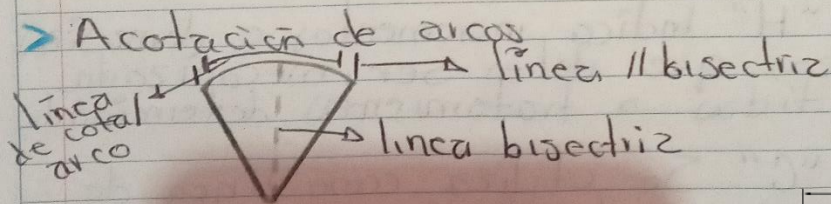 > Acotación de arcos
línea // bisectriz
línea
de cotal
arco
línea bisectriz